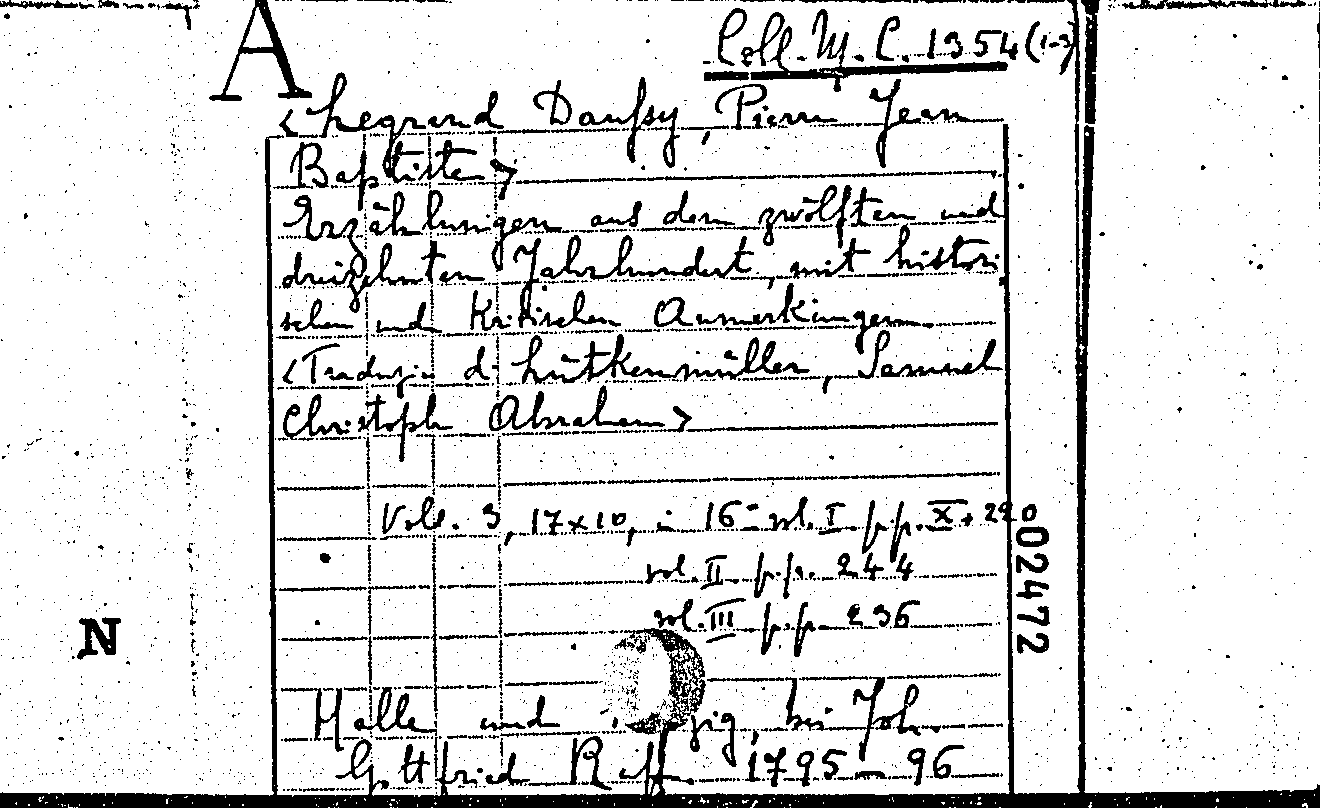 A
Coll. M. C. 1954 (1-3)
<Legrand Daussy, Pierre Jean
Baptiste>
Erzählungen aus dem zwölften und
dreizehnten Jahrhundert, mit histori
schen und Kritischen Anmerkungen
<Traduzion d. Lütkenmüller, Samuel
Christoph Abraham>
Voll. 3, 17x10, in 16º vol. I p.p. X+220
vol. II p.p. 244
vol. III p.p. 236
02472
N
Halle und bei Joh.
Gottfried Ruff. 1795-96